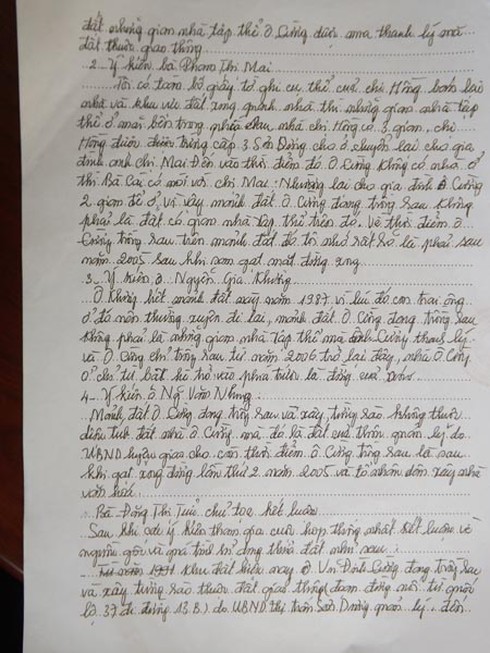 đất những gian nhà tập thể Ô Cường được mua thanh lý mà
đất thuộc giao thông
2 - Ý kiến bà Phạm Thị Mai
Tôi có toàn bộ giấy tờ ghi cụ thể của chị Hồng bán lại
nhà và khu vực đất xung quanh nhà thì những gian nhà tập
thể ở mãi bên trong phía sau nhà chị Hồng có 3 gian, chị
Hồng được được trung cấp 3 Sơn Dương cho ở chuyển lại cho gia
đình anh chị Mai Đến vào thời điểm đó Ô Cường không có nhà ở
thì Bà có nói với chị Mai: Nhường lại cho gia đình Ô Cường
2 gian để ở vì vậy mảnh đất Ô Cường đang trồng sau không
phải là đất có gian nhà tập thể trên đó. Về thời điểm Ô
Cường trồng sau trên mảnh đất đó tôi nhớ rất rõ là phải sau
năm 2005 sau khi san gạt mặt đường xong
3 - Ý kiến ô Nguyễn Gia Khường
Ô Khường biết mảnh đất này năm 1987 vì lúc đó con trai ông
ở đó nên thường xuyên đi lại, mảnh đất Ô Cường đang trồng sau
không phải là những gian nhà tập thể mà Ô Cường thanh lý
và Ô Cường chỉ trồng sau từ năm 2006 trở lại đây, nhà Ô Cường
ở chỉ từ bật hè trở vào phía trước là đường cũ
4 - Ý kiến ô Ng Văn Nhung:
Mảnh đất Ô Cường đang trồng sau và xây tường rào không thuộc
diện tích đất nhà Ô Cường mà đó là đất của thôn quản lý do
UBND huyện giao cho, còn thời điểm Ô Cường trồng sau là sau
khi gạt xong đường lần thứ 2 năm 2005 và tổ nhân dân xây nhà
văn hóa.
Bà Đặng Thị Tuổi chủ tọa kết luận
Sau khi các ý kiến tham gia cuộc họp thống nhất kết luận về
nguồn gốc và quá trình sử dụng thửa đất như sau:
Từ năm 1991 khu đất hiện nay Ô Vn Đình Cường đang trồng sau
và xây tường rào thuộc đất giao thông (đoạn đường nối từ quốc
lộ 37 đi đường 13B) do UBND thị trấn Sơn Dương quản lý, đến